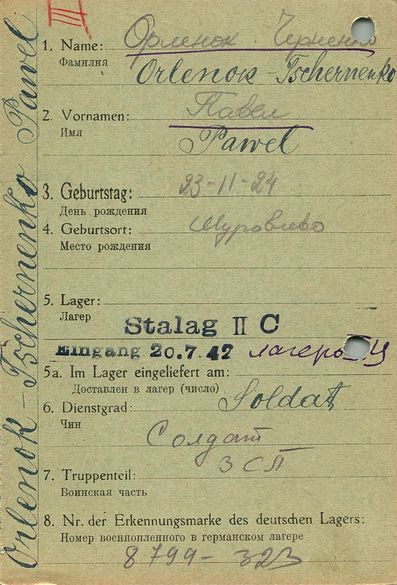 III
Orlenok - Tschernenko Pawel
1. Name: Орленок - Черненко
Фамилия
Orlenok - Tschernenko
2. Vornamen: Павел
Имя
Pawel
3. Geburtstag: 23-11-24
День рождения
4. Geburtsort: Шуровлево
Место рождения
5. Lager:
Лагерь
Stalag II C
Eingang 20.7.42 лагерь
5a. Im Lager eingeliefert am:
Доставлен в лагер (число)
6. Dienstgrad: Soldat
Чин
Солдат
ЗСП
7. Truppenteil:
Воинская часть
8. Nr. der Erkennungsmarke des deutschen Lagers:
Номер военнопленного в германском лагере
8799 - 323